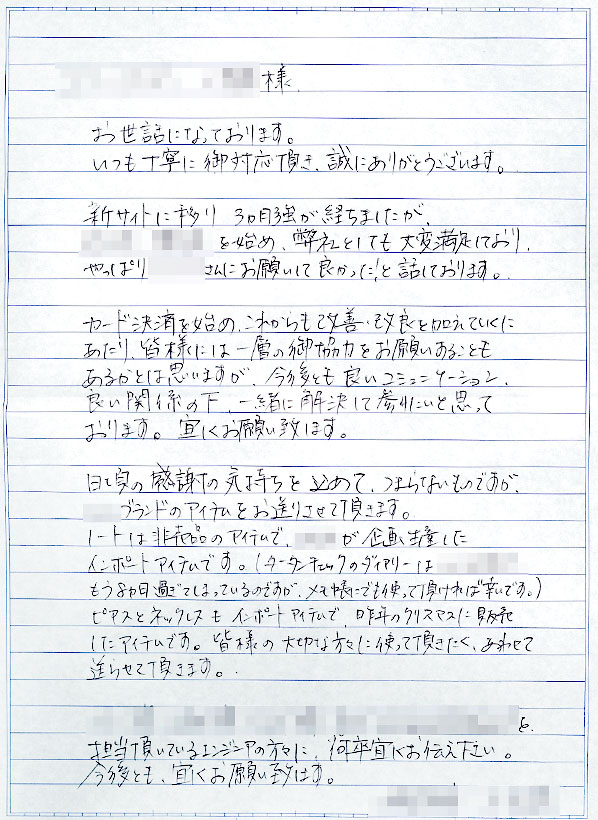 様
お世話になっております。
いつも丁寧に御対応頂き、誠にありがとうございます。
新サイトに移り 3ヵ月強が経ちましたが、
を始め、弊社としても大変満足しており、
やっぱり さんにお願いして良かった！と話しております。
カード決済を始め、これからも改善・改良を加えていくに
あたり、皆様には一層の御協力をお願いすることも
あるかとは思いますが、今後とも良いコミュニケーション、
良い関係の下、一緒に解決して参りたいと思って
おります。宜しくお願い致します。
日頃の感謝の気持ちを込めて、つまらないものですが、
ブランドのアイテムをお送りさせて頂きます。
ノートは非売品のアイテムで、 が企画、生産した
インポートアイテムです。(タータンチェックのダイアリーは
もう8ヵ月過ぎてしまっているのですが、メモ帳にでも使って頂ければ幸いです。)
ピアスとネックレスもインポートアイテムで、昨年のクリスマスに販売
したアイテムです。皆様の大切な方々に使って頂きたく、あわせて
送らせて頂きます。
と、
担当頂いているエンジニアの方々に、何卒宜しくお伝え下さい。
今後とも、宜しくお願い致します。